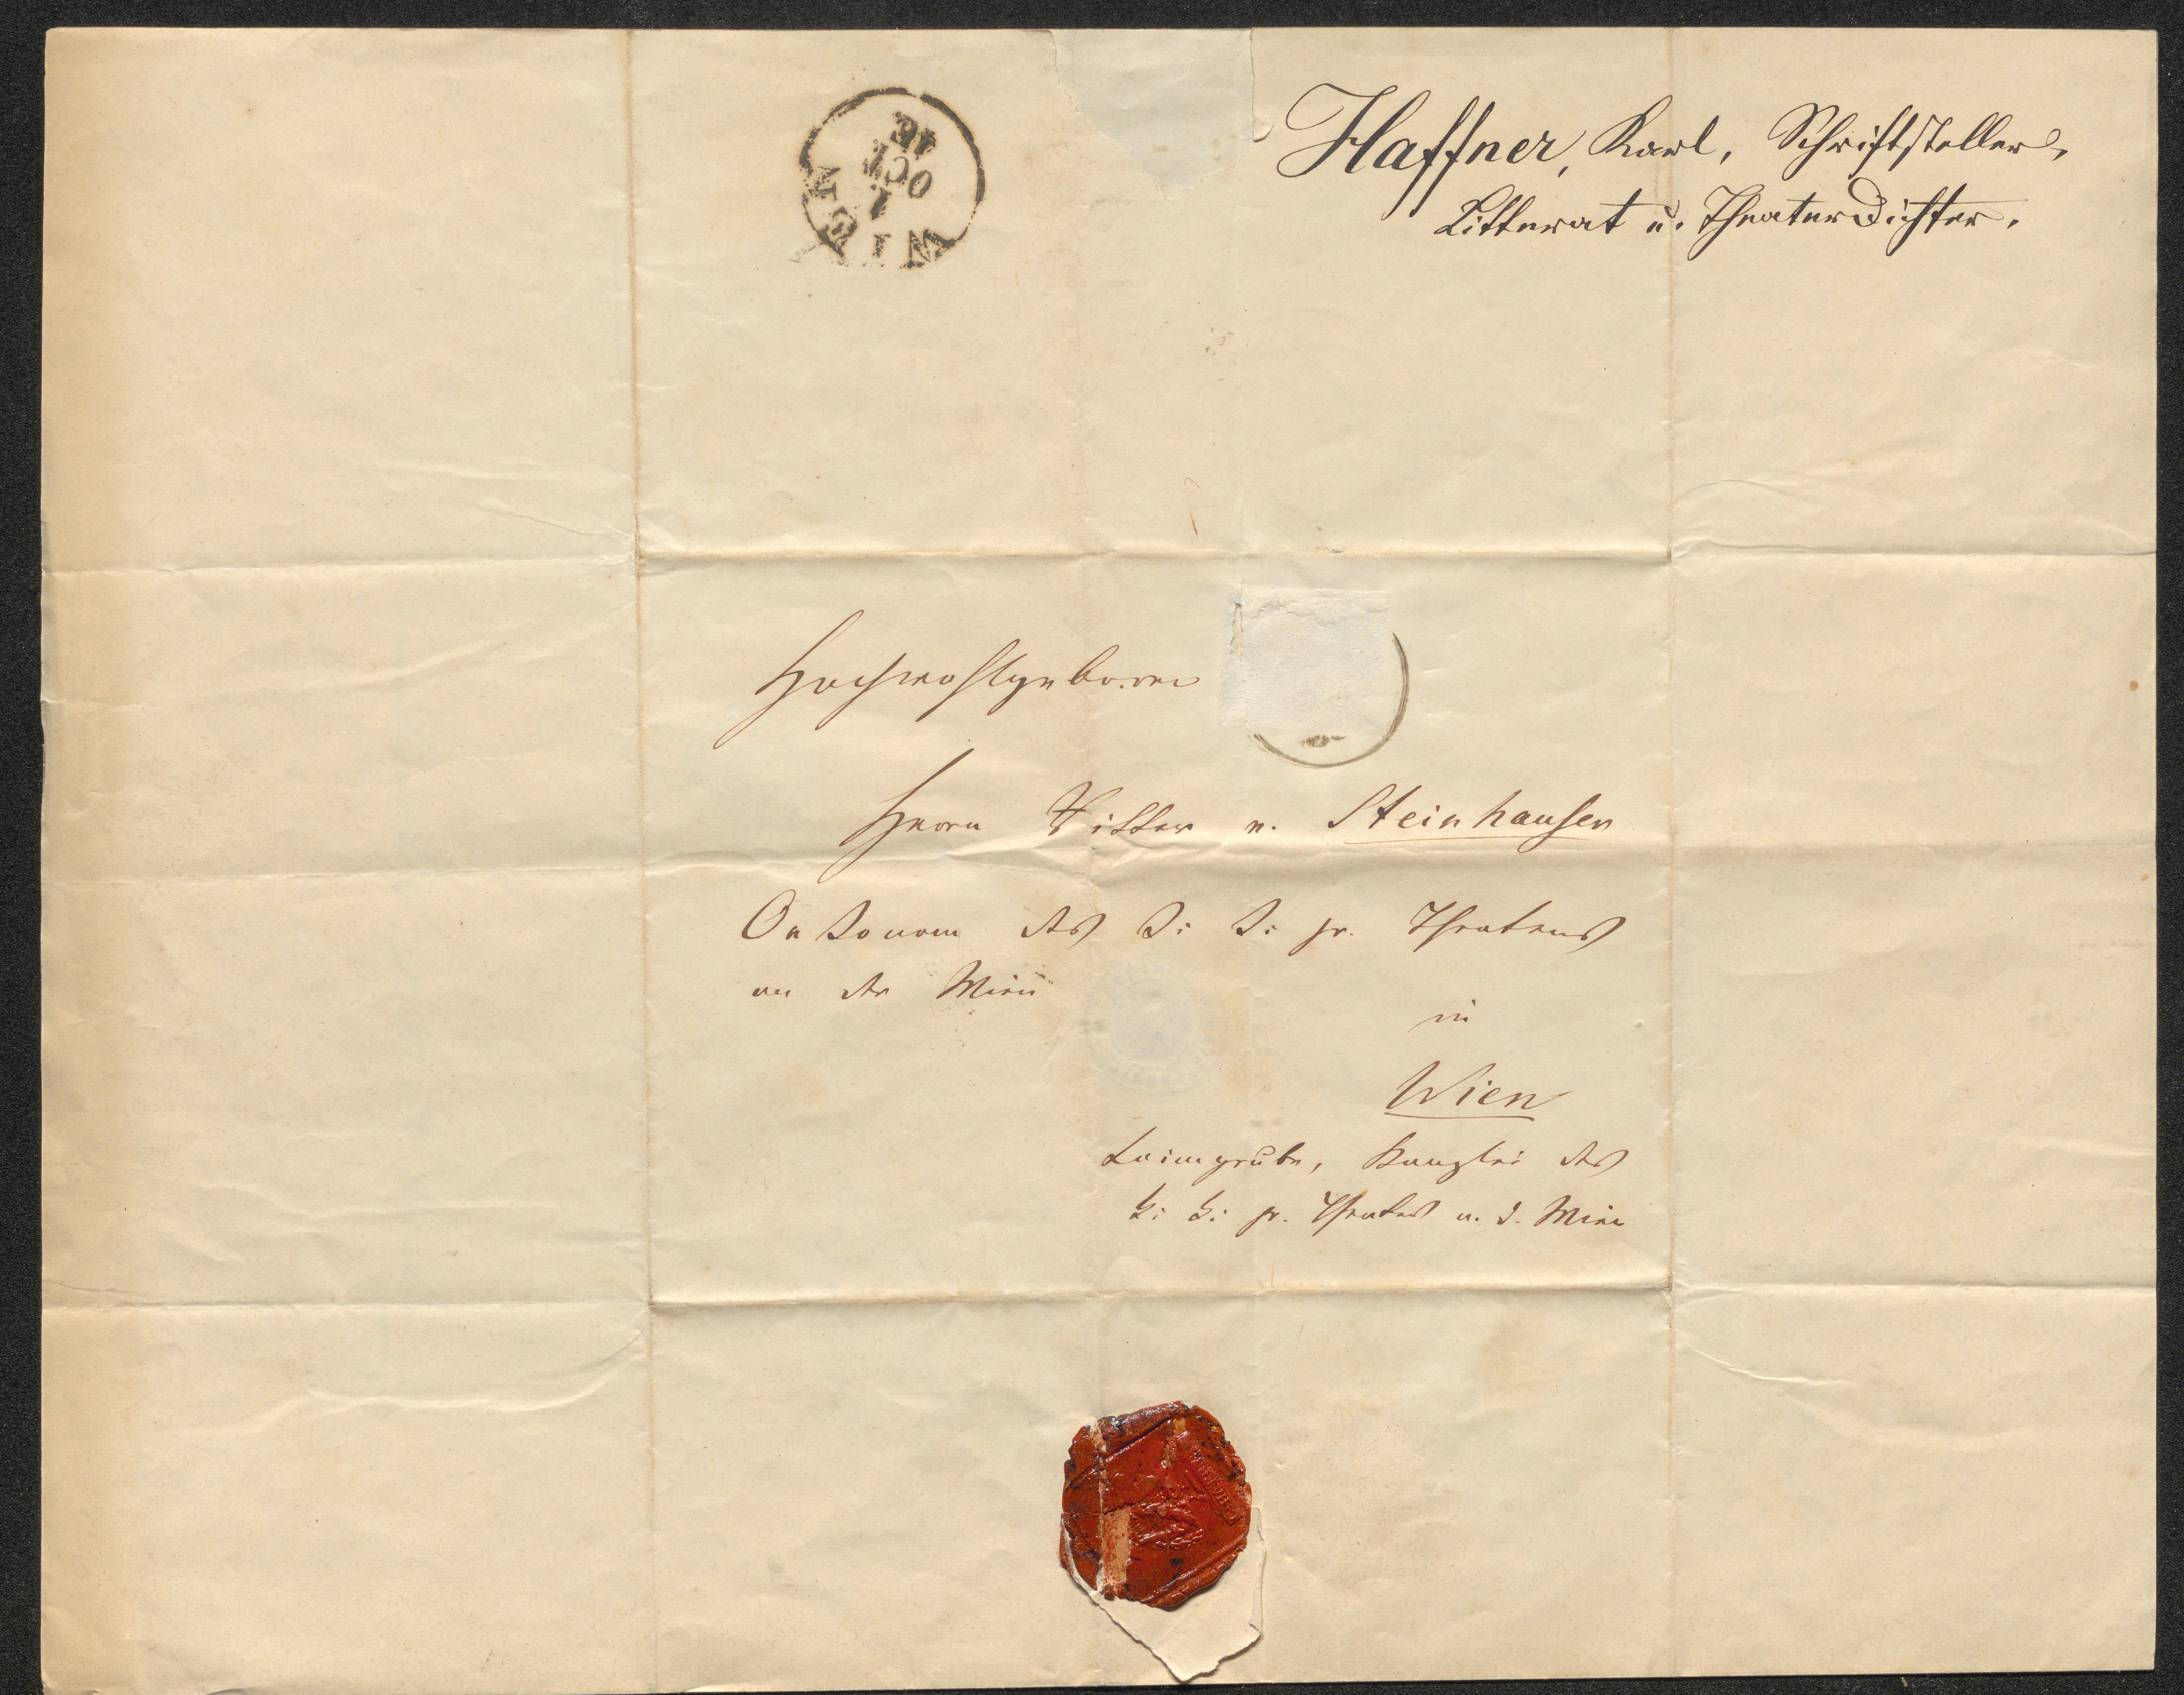 Haffner, Karl, Schriftsteller,
Litterat u. Theaterdichter.
WIEN
1
OCT
Hochwohlgeboren
Herrn Ritter v. Steinhauser
Oekonom des k: k: pr. Theaters
an der Wien
in
Wien
Laimgrube, Kanzlei des
k: k: pr. Theaters a. d. Wien